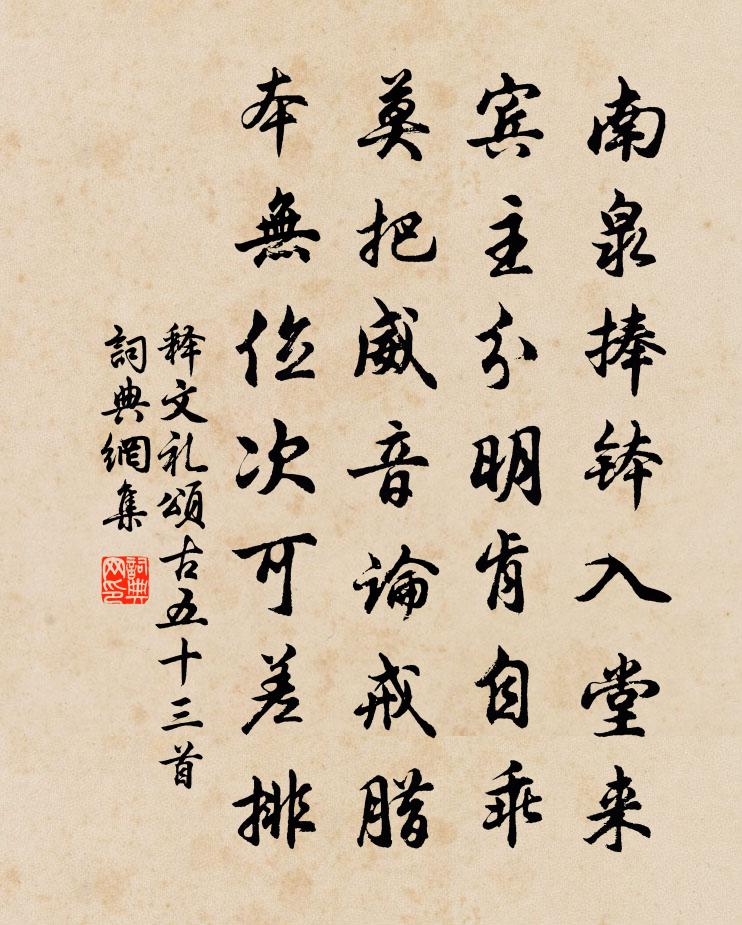 南泉捧钵入堂来
宾主分明肯自乖
莫把威音论戒腊
本無位次可差排
释文礼頌古五十三首
詞典網集
詞典网印